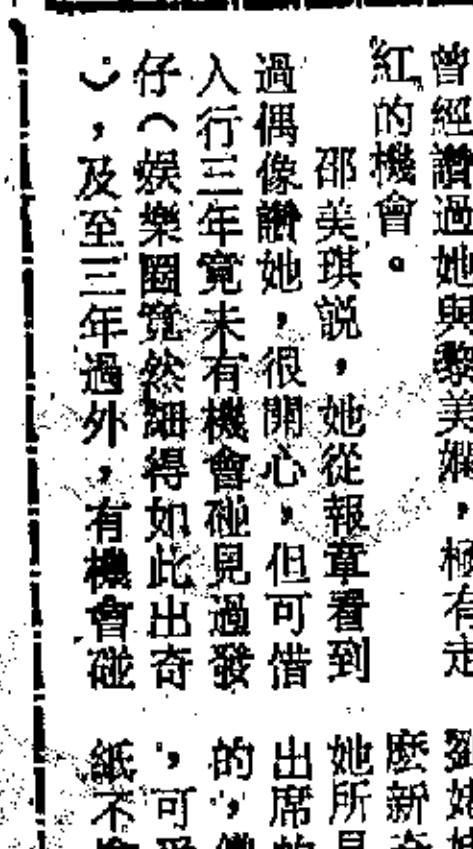 曾經讚過她與黎美嫻，極有走
紅的機會。
邵美琪説，她從報章看到
過偶像讚她，很開心，但可惜
入行三年竟未有機會碰見過發
仔（娛樂圈竟然細得如此出奇
），及至三年過外，有機會碰
劉
麼新
她所
出席
的，
，可
紙不